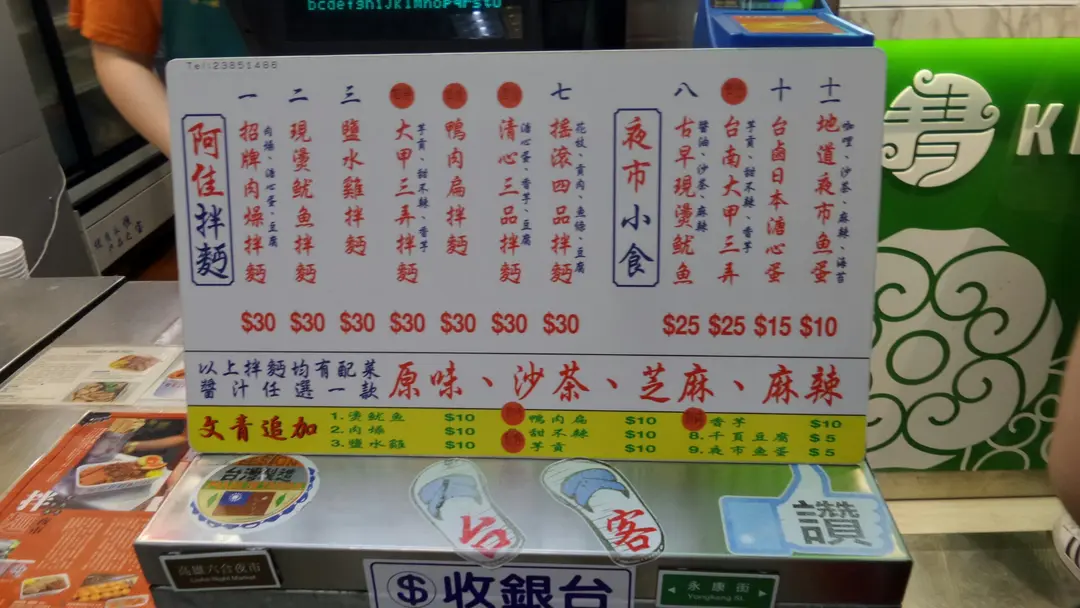 bcdefghijklmnopqrstu
Tel:23851486
阿佳拌麵
一 招牌肉燥拌麵 肉燥、溏心蛋、豆腐 $30
二 現燙魷魚拌麵 $30
三 鹽水雞拌麵 $30
大甲三弄拌麵 芋貢、甜不辣、香芋 $30
鴨肉扁拌麵 $30
清心三品拌麵 溏心蛋、香芋、豆腐 $30
七 搖滾四品拌麵 花枝、貢肉、魚條、豆腐 $30
夜市小食
八 古早現燙魷魚 醬油、沙茶、麻辣 $25
台南大甲三弄 芋貢、甜不辣、香芋 $25
十 台鹵日本溏心蛋 $15
十一 地道夜市魚蛋 咖哩、沙茶、麻辣、海苔 $10
以上拌麵均有配菜
醬汁任選一款
原味、沙茶、芝麻、麻辣
文青追加
1.燙魷魚 $10
2.肉燥 $10
3.鹽水雞 $10
鴨肉扁 $10
甜不辣 $10
芋貢 $10
香芋 $10
8.千頁豆腐 $5
9.夜市魚蛋 $5
青
K
拌
台灣製造
台客
讚
高雄六合夜市
Liuhe Night Market
$收銀台
永康街
Yongkang St.